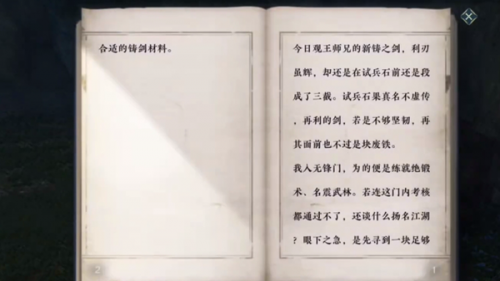 今日观王师兄的新铸之剑，利刃
虽辉，却还是在试兵石前还是段
成了三截。试兵石果真名不虚传
，再利的剑，若是不够坚韧，再
其面前也不过是块废铁。
我入无锋门，为的便是练就绝锻
术、名震武林。若连这门内考核
都通过不了，还谈什么扬名江湖
？眼下之急，是先寻到一块足够
1
合适的铸剑材料。
2